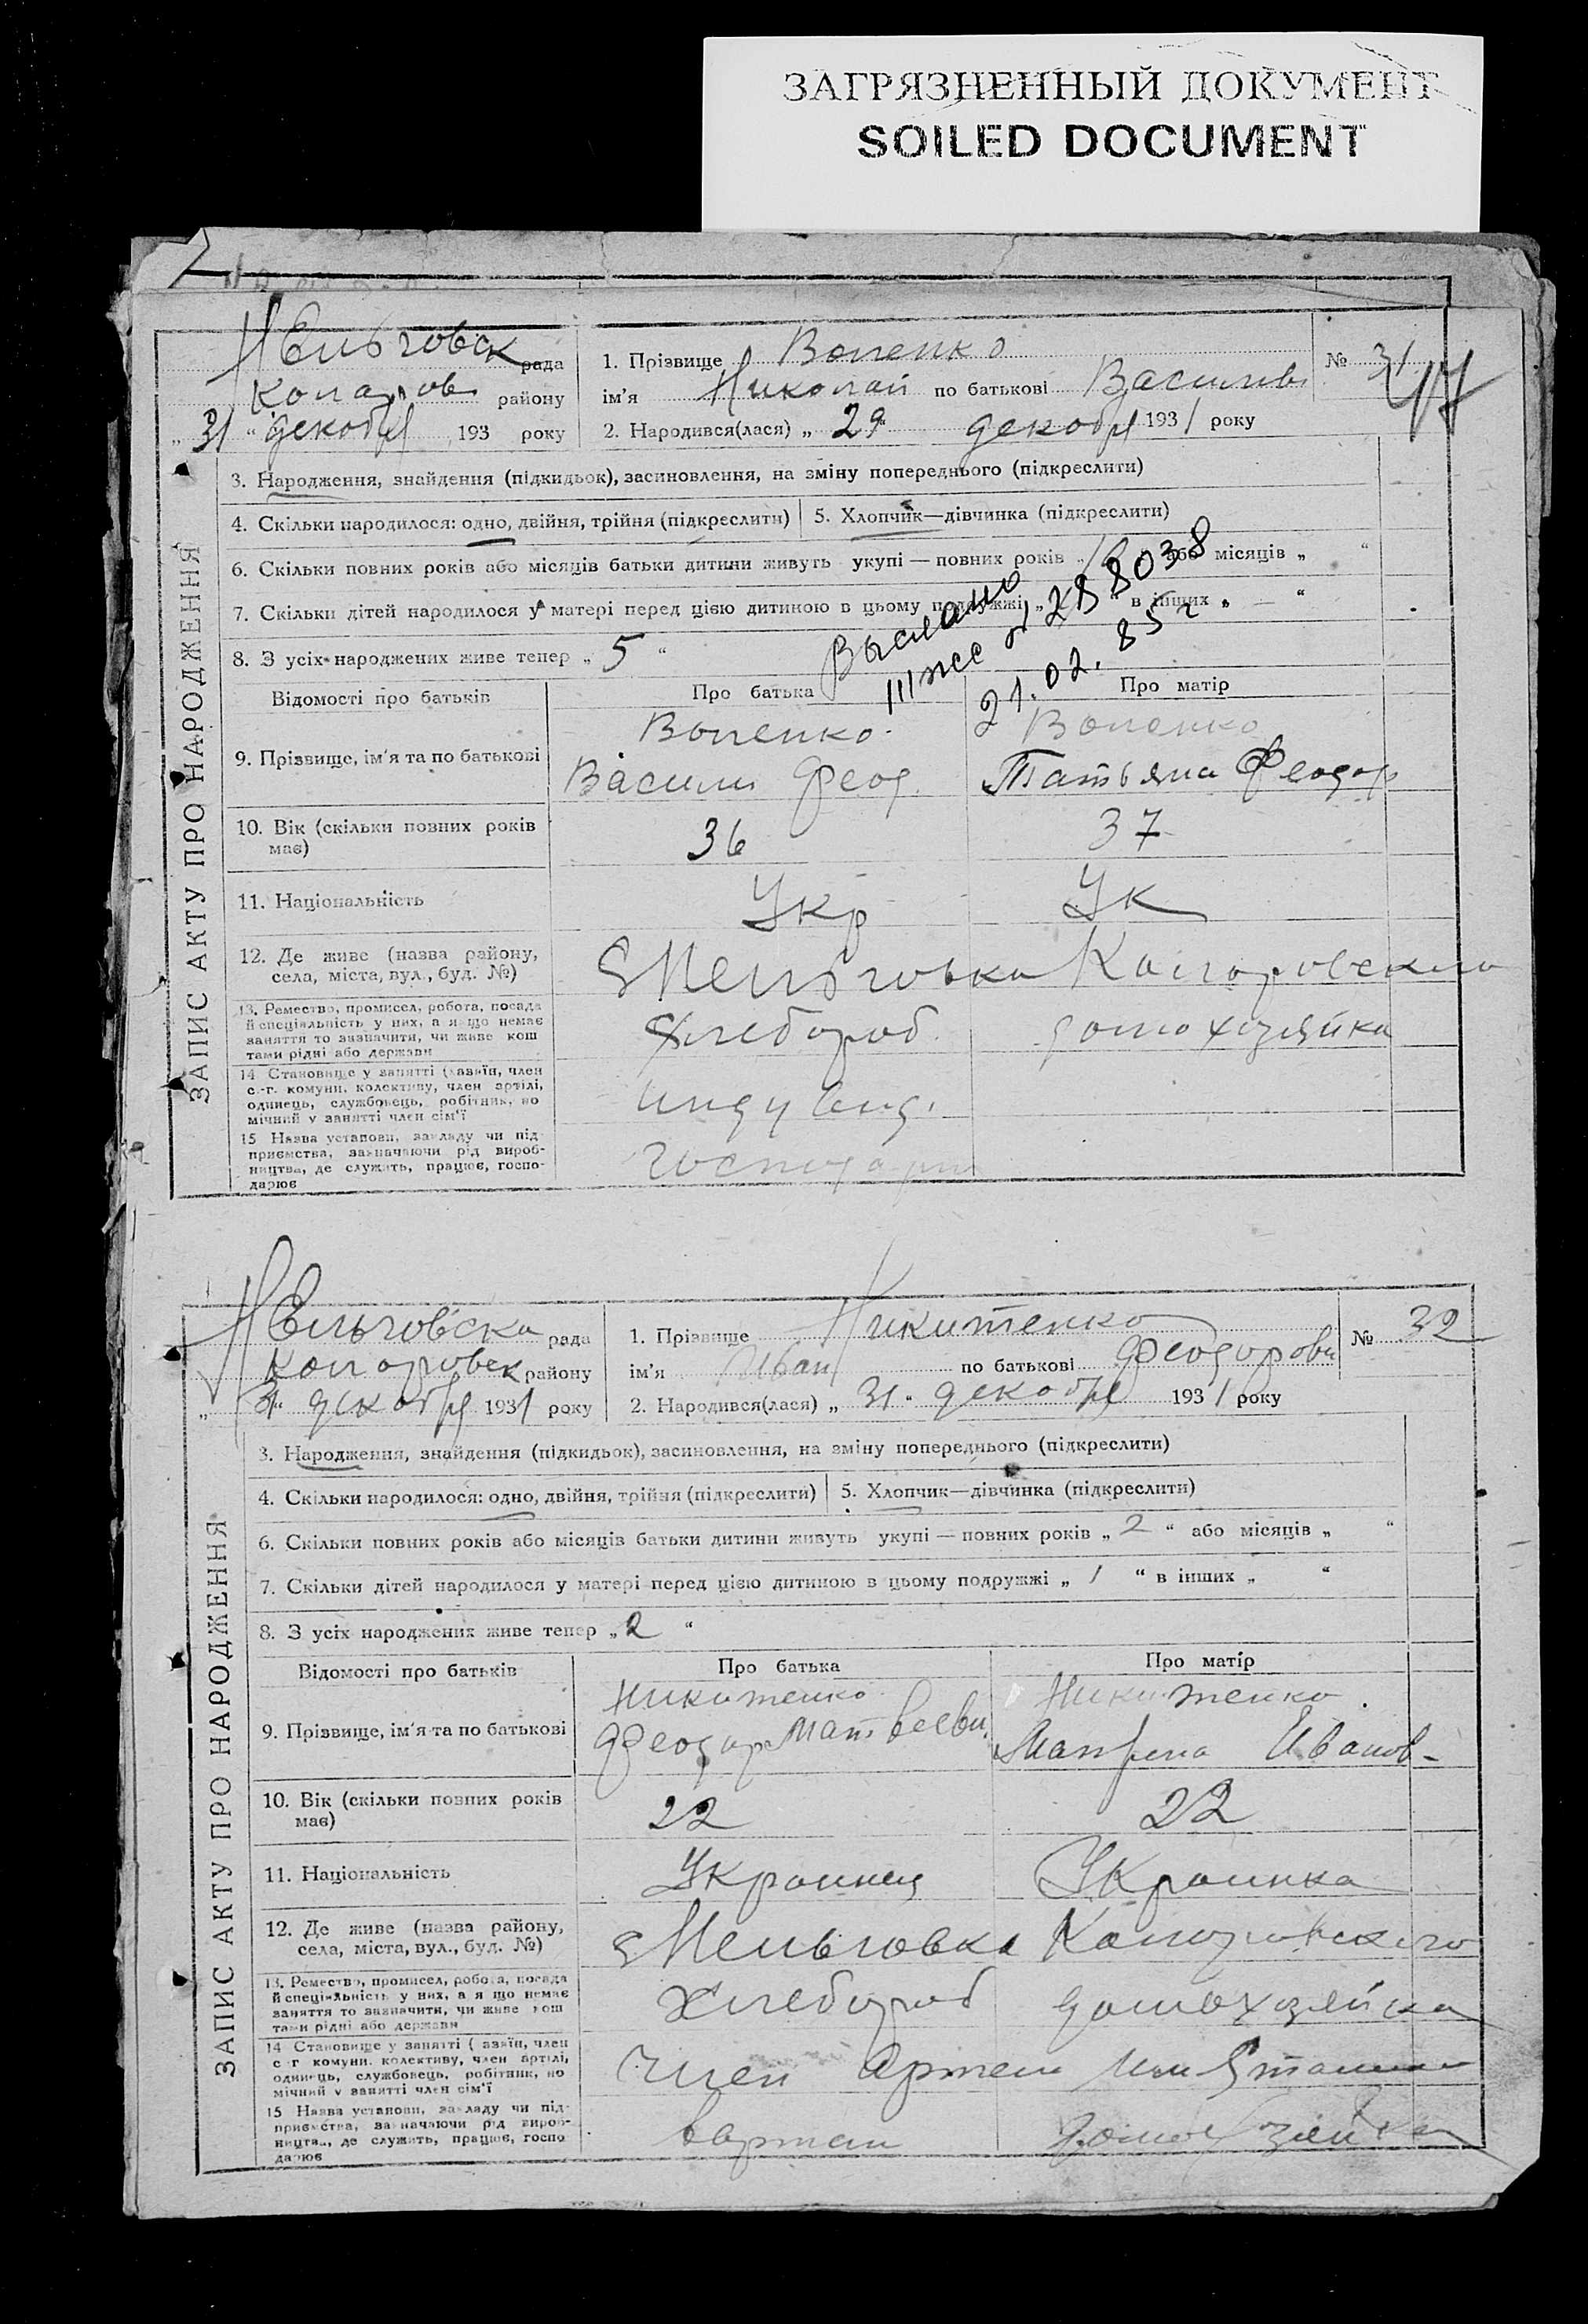 ЗАГРЯЗНЕННЫЙ ДОКУМЕНТ
SOILED DOCUMENT
ЗАПИС АКТУ ПРО НАРОДЖЕННЯ
рада
району
„ 31 “ декабря 193 року
1. Прізвище
№ 31
ім'я Николай по батькові Васильев
2. Народився(лася) „ 29 “ декабря 1931 року
3. Народження, знайдення (підкидьок), засиновлення, на зміну попереднього (підкреслити)
4. Скільки народилося: одно, двійня, трійня (підкреслити)
5. Хлопчик—дівчинка (підкреслити)
6. Скільки повних років або місяців батьки дитини живуть укупі — повних років або місяців „ “
7. Скільки дітей народилося у матері перед цією дитиною в цьому подружжі „ “ в інших „ — “
8. З усіх народжених живе тепер „ 5 “
Выслано
288038
21.02.85 г
Відомості про батьків
Про батька
Про матір
9. Прізвище, ім'я та по батькові
Васили Феод.
Татьяна Феодор
10. Вік (скільки повних років має)
36
37
11. Національність
Укр
Ук
12. Де живе (назва району, села, міста, вул., буд. №)
13. Ремество, промисел, робота, посада й спеціяльність у них, а якщо немає заняття то зазначити, чи живе коштами рідні або держави
хлебороб
домохозяйка
14 Становище у занятті (хазяїн, член с.-г. комуни, колективу, член артілі, одинець, службовець, робітник, помічний у занятті член сім'ї
индувид.
15 Назва установи, закладу чи підприємства, зазначаючи рід виробництва, де служить, працює, господарює
ЗАПИС АКТУ ПРО НАРОДЖЕННЯ
рада
району
„ 31 “ декабря 1931 року
1. Прізвище Никитенко
№ 32
ім'я Иван по батькові Феодорови
2. Народився(лася) „ 31 “ декабря 1931 року
3. Народження, знайдення (підкидьок), засиновлення, на зміну попереднього (підкреслити)
4. Скільки народилося: одно, двійня, трійня (підкреслити)
5. Хлопчик—дівчинка (підкреслити)
6. Скільки повних років або місяців батьки дитини живуть укупі — повних років „ 2 “ або місяців „ “
7. Скільки дітей народилося у матері перед цією дитиною в цьому подружжі „ 1 “ в інших „ “
8. З усіх народжених живе тепер „ 2 “
Відомості про батьків
Про батька
Про матір
9. Прізвище, ім'я та по батькові
Никитенко
Феодор Матвееви
Никитенко
Иванов-
10. Вік (скільки повних років має)
22
22
11. Національність
Украинец
Украинка
12. Де живе (назва району, села, міста, вул., буд. №)
13. Ремество, промисел, робота, посада й спеціяльність у них, а якщо немає заняття то зазначити, чи живе коштами рідні або держави
хлебороб
домохозяйка
14 Становище у занятті (хазяїн, член с.-г. комуни, колективу, член артілі, одинець, службовець, робітник, помічний у занятті член сім'ї
Член Артели
15 Назва установи, закладу чи підприємства, зазначаючи рід виробництва, де служить, працює, господарює
вартели
домохозяйка